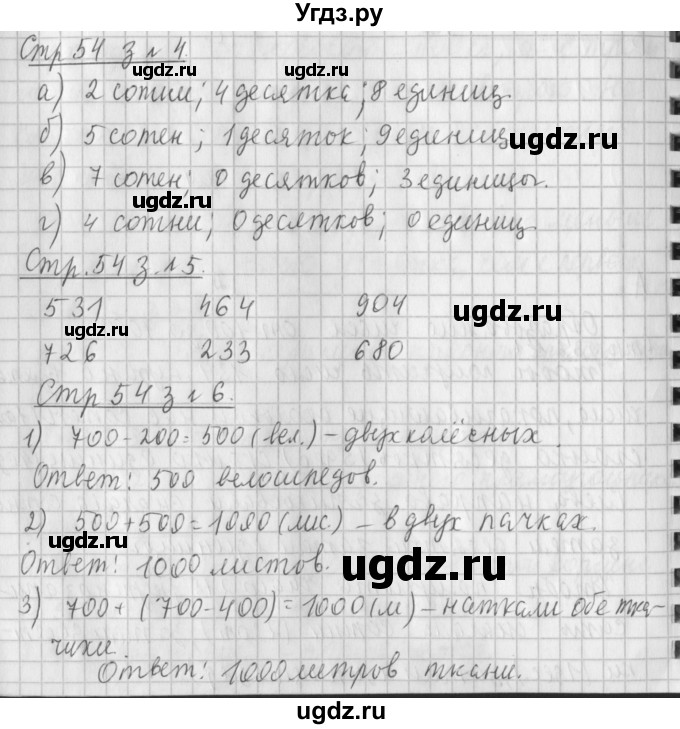 Угдз.ру
Стр 54 з л 4.
ugdz.ru ugdz.ru
а) 2 сотни; 4 десятка; 8 единиц.
б) 5 сотен; 1 десяток; 9 единиц
ugdz.ru
в) 7 сотен; 0 десятков; 3 единицы.
ugdz.ru
г) 4 сотни; 0 десятков; 0 единиц
Стр. 54 з. л 5.
531 464 904
ugdz.ru ugdz.ru
726 233 680
ugdz.ru
Стр 54 з л 6.
1) 700-200=500 (вел.) - двухколёсных.
Ответ: 500 велосипедов.
ugdz.ru
2) 500+500=1000 (лис.) - в двух пачках.
ugdz.ru
Ответ: 1000 листов.
ugdz.ru
3) 700+(700-400)=1000 (м) - наткали обе тка-
чихи.
ugdz.ru
Ответ: 1000 метров ткани.
ugdz.ru